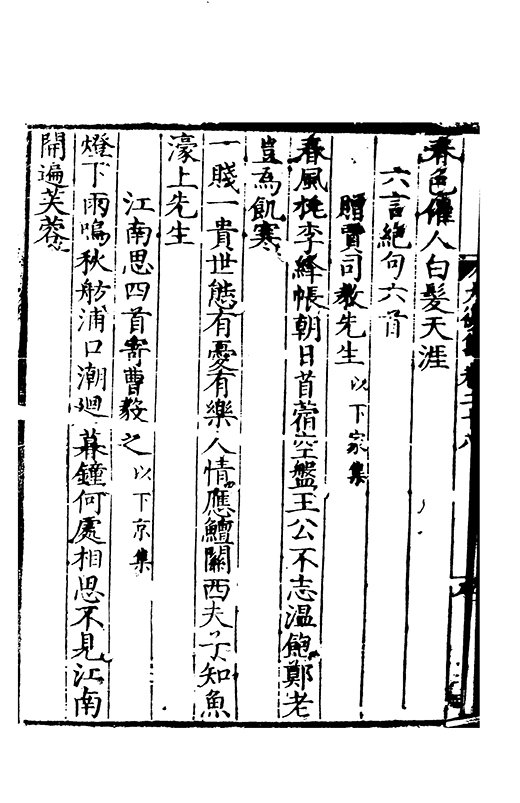 春色催人白髮天涯
六言絕句六首
贈賈司教先生以下家集
春風桃李絳帳朝日苜蓿空盤王公不志温飽鄭老
豈為飢寒
一賤一貴世態有憂有樂人情應鱣關西夫子知魚
濠上先生
江南思四首寄曹毅之以下京集
燈下雨鳴秋舫浦口潮廻暮鐘何處相思不見江南
開遍芙蓉
卷二十八